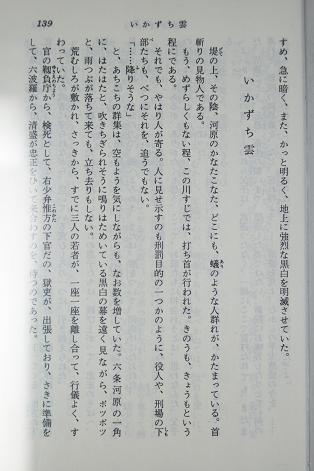 139
いかずち雲
すめ、急に暗く、また、かっと明るく、地上に強烈な黒白を明滅させていた。
いかずち雲
堤の上、その陰、河原のかなたこなた、どこにも、蟻のような人群れが、かたまっている。首
斬りの見物人である。
もう、めずらしくもない程、この川すじでは、打ち首が行われた。きのうも、きょうもという
程にである。
それでも、やはり人が寄る。人に見せ示すのも刑罰目的の一つかのように、役人や、刑場の下
部たちも、べつにそれを、追うでもない。
「……降りそうな」
と、あちこちの群集は、空もようを気にしながらも、なお数を増していた。六条河原の一角
に、はたはたと、吹きちぎられそうに鳴りはためいている黒白の幕を遠く見ながら、ポツポツ
と、雨つぶが落ちて来ても、立ち去りもしない。
荒むしろが敷かれ、さっきから、すでに三人の若者が、一座一座を離し合って、行儀よく、す
わっていた。
官の靱負庁から、検死として、右少弁惟方の下官だの、獄吏が、出張しており、さきに準備を
して、六波羅から、清盛が忠正をひいて来合わすのを、待つのであった。